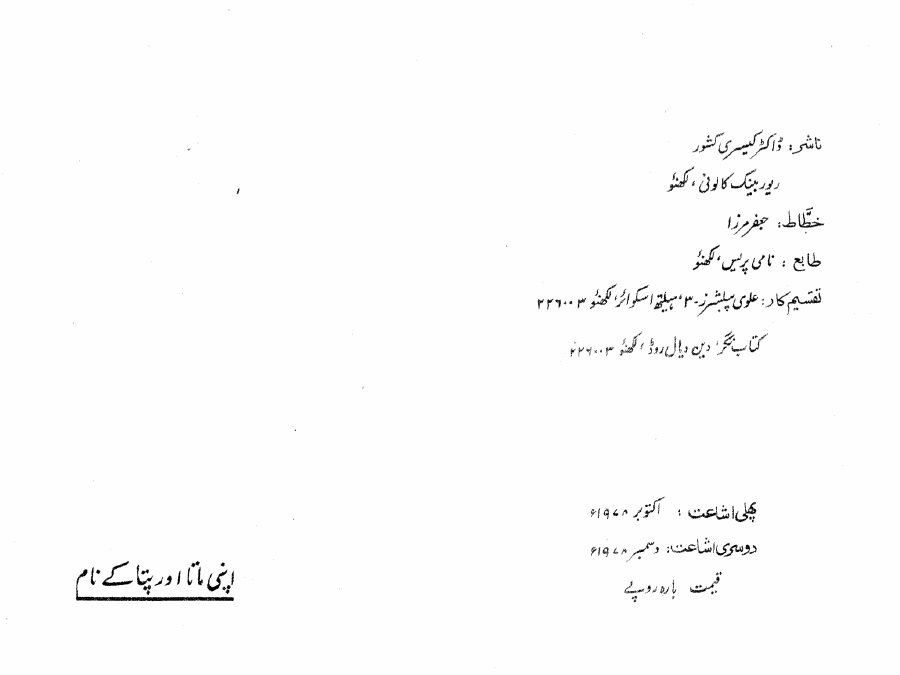 ناشر: ڈاکٹر کیسری کشور
ریور بینک کالونی، لکھنؤ
خطّاط: جعفر مرزا
طابع: نامی پریس، لکھنؤ
تقسیم کار: علوی پبلشرز۔ ۳، ہیلتھ اسکوائر، لکھنؤ ۲۲۶۰۰۳
کتاب نگر، دین دیال روڈ، لکھنؤ ۲۲۶۰۰۳
پہلی اشاعت: اکتوبر ۱۹۷۸ء
دوسری اشاعت: دسمبر ۱۹۷۸ء
قیمت بارہ روپے
اپنی ماتا اور پتا کے نام